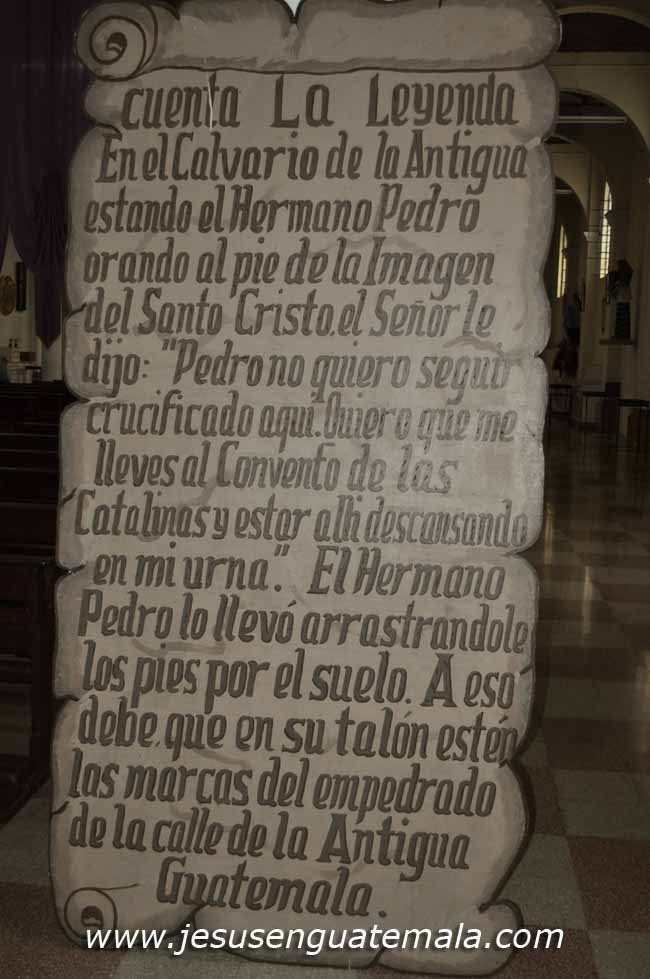 cuenta La Leyenda
En el Calvario de la Antigua
estando el Hermano Pedro
orando al pie de la Imagen
del Santo Cristo, el Señor le
dijo: "Pedro no quiero seguir
crucificado aquí. Quiero que me
lleves al Convento de las
Catalinas y estar alli descansando
en mi urna". El Hermano
Pedro lo llevó arrastrandole
los pies por el suelo. A eso
debe, que en su talón estén
las marcas del empedrado
de la calle de la Antigua
Guatemala.
www.jesusenguatemala.com